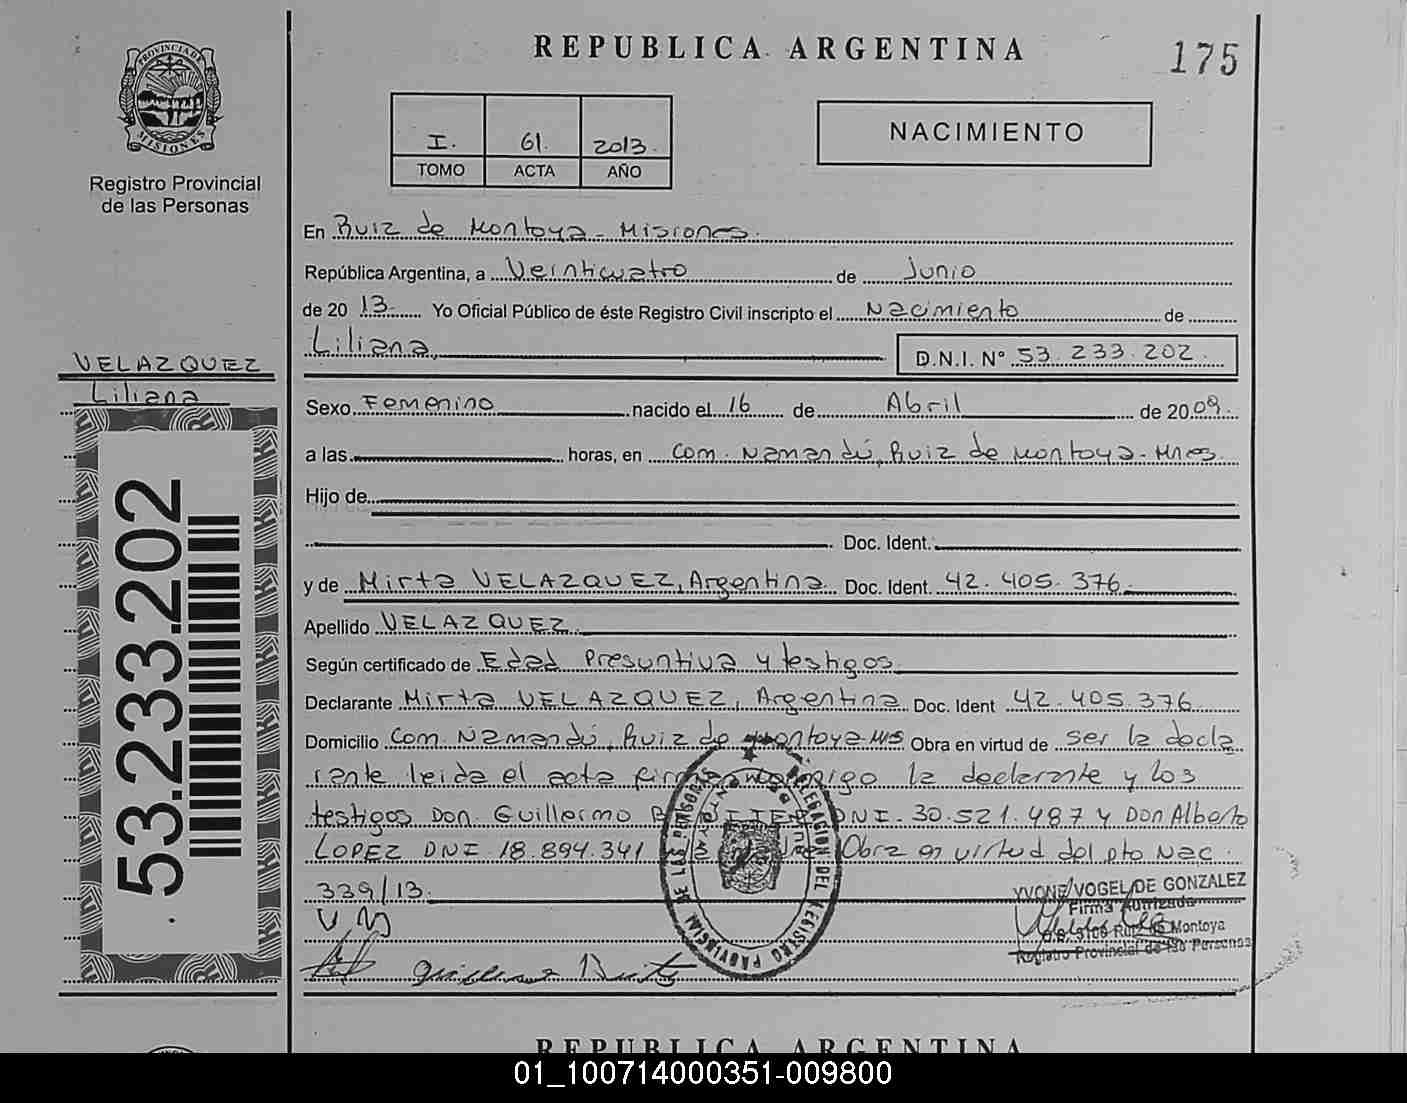 REPUBLICA ARGENTINA
175
PROVINCIA DE MISIONES
Registro Provincial
de las Personas
I. 61. 2013.
TOMO ACTA AÑO
NACIMIENTO
En Ruiz de Montoya - Misiones.
República Argentina, a Veinticuatro de Junio
de 2013. Yo Oficial Público de éste Registro Civil inscripto el Nacimiento de
Liliana, D.N.I. N° 53.233.202.
VELAZQUEZ
Liliana
Sexo Femenino nacido el 16 de Abril de 2009.
a las horas, en Com. Namandú, Ruiz de Montoya - Mnes.
Hijo de
Doc. Ident.
y de Mirta VELAZQUEZ, Argentina. Doc. Ident. 42.405.376
Apellido VELAZQUEZ
Según certificado de Edad Presuntiva y testigos
Declarante Mirta VELAZQUEZ, Argentina Doc. Ident 42.405.376
Domicilio Com. Namandú, Ruiz de Montoya Mns Obra en virtud de ser la decla
rante leida el acta firma conmigo la declarante y los
testigos Don. Guillermo DNI. 30.521.487 y Don Alberto
LOPEZ DNI. 18.894.341 Obra en virtud del pto Nac.
339/13.
VM
53.233.202
DELEGACION DEL REGISTRO PROVINCIAL DE LAS PERSONAS
YVONE VOGEL DE GONZALEZ
Firma Autrizada
3106 Ruiz de Montoya
Registro Provincial de las Personas
REPUBLICA ARGENTINA
01_100714000351-009800